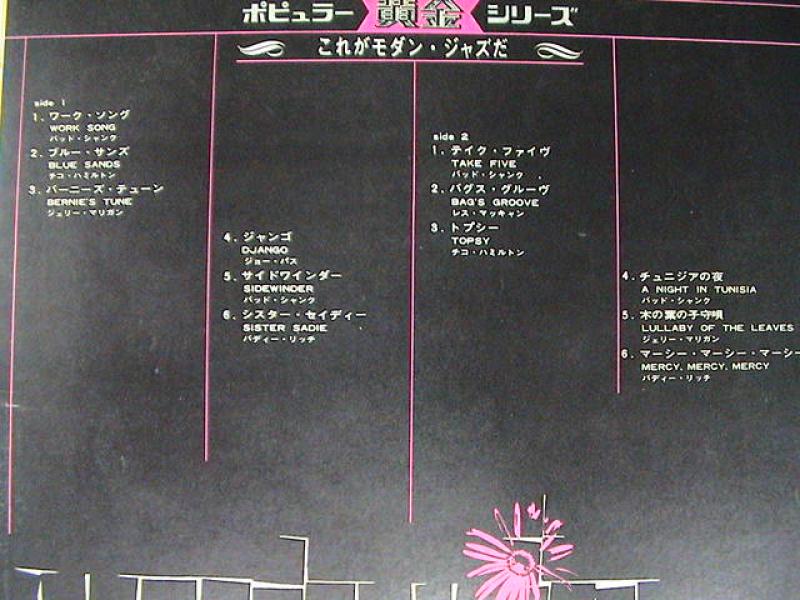 ポピュラー黄金シリーズ
これがモダン・ジャズだ
side 1
1. ワーク・ソング
WORK SONG
バッド・シャンク
2. ブルー・サンズ
BLUE SANDS
チコ・ハミルトン
3. バーニーズ・テューン
BERNIE'S TUNE
ジェリー・マリガン
4. ジャンゴ
DJANGO
ジョー・パス
5. サイドワインダー
SIDEWINDER
バッド・シャンク
6. シスター・セイディー
SISTER SADIE
バディー・リッチ
side 2
1. テイク・ファイヴ
TAKE FIVE
バッド・シャンク
2. バグス・グルーヴ
BAG'S GROOVE
レス・マッキャン
3. トプシー
TOPSY
チコ・ハミルトン
4. チュニジアの夜
A NIGHT IN TUNISIA
バッド・シャンク
5. 木の葉の子守唄
LULLABY OF THE LEAVES
ジェリー・マリガン
6. マーシー・マーシー・マーシー
MERCY, MERCY, MERCY
バディー・リッチ